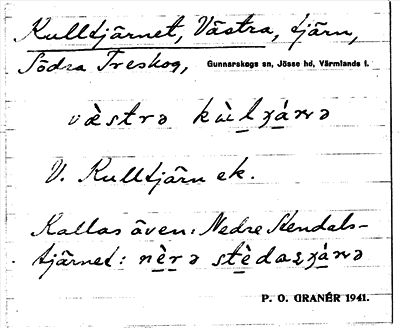 Kulltjärnet, Västra, tjärn,
Södra Treskog, Gunnarskogs sn, Jösse hd, Värmlands l.
vὲstrə
V. Kulltjärn ek.
Kallas även: Nedre Stendals-
tjärnet:
P. O. GRANÉR 1941.